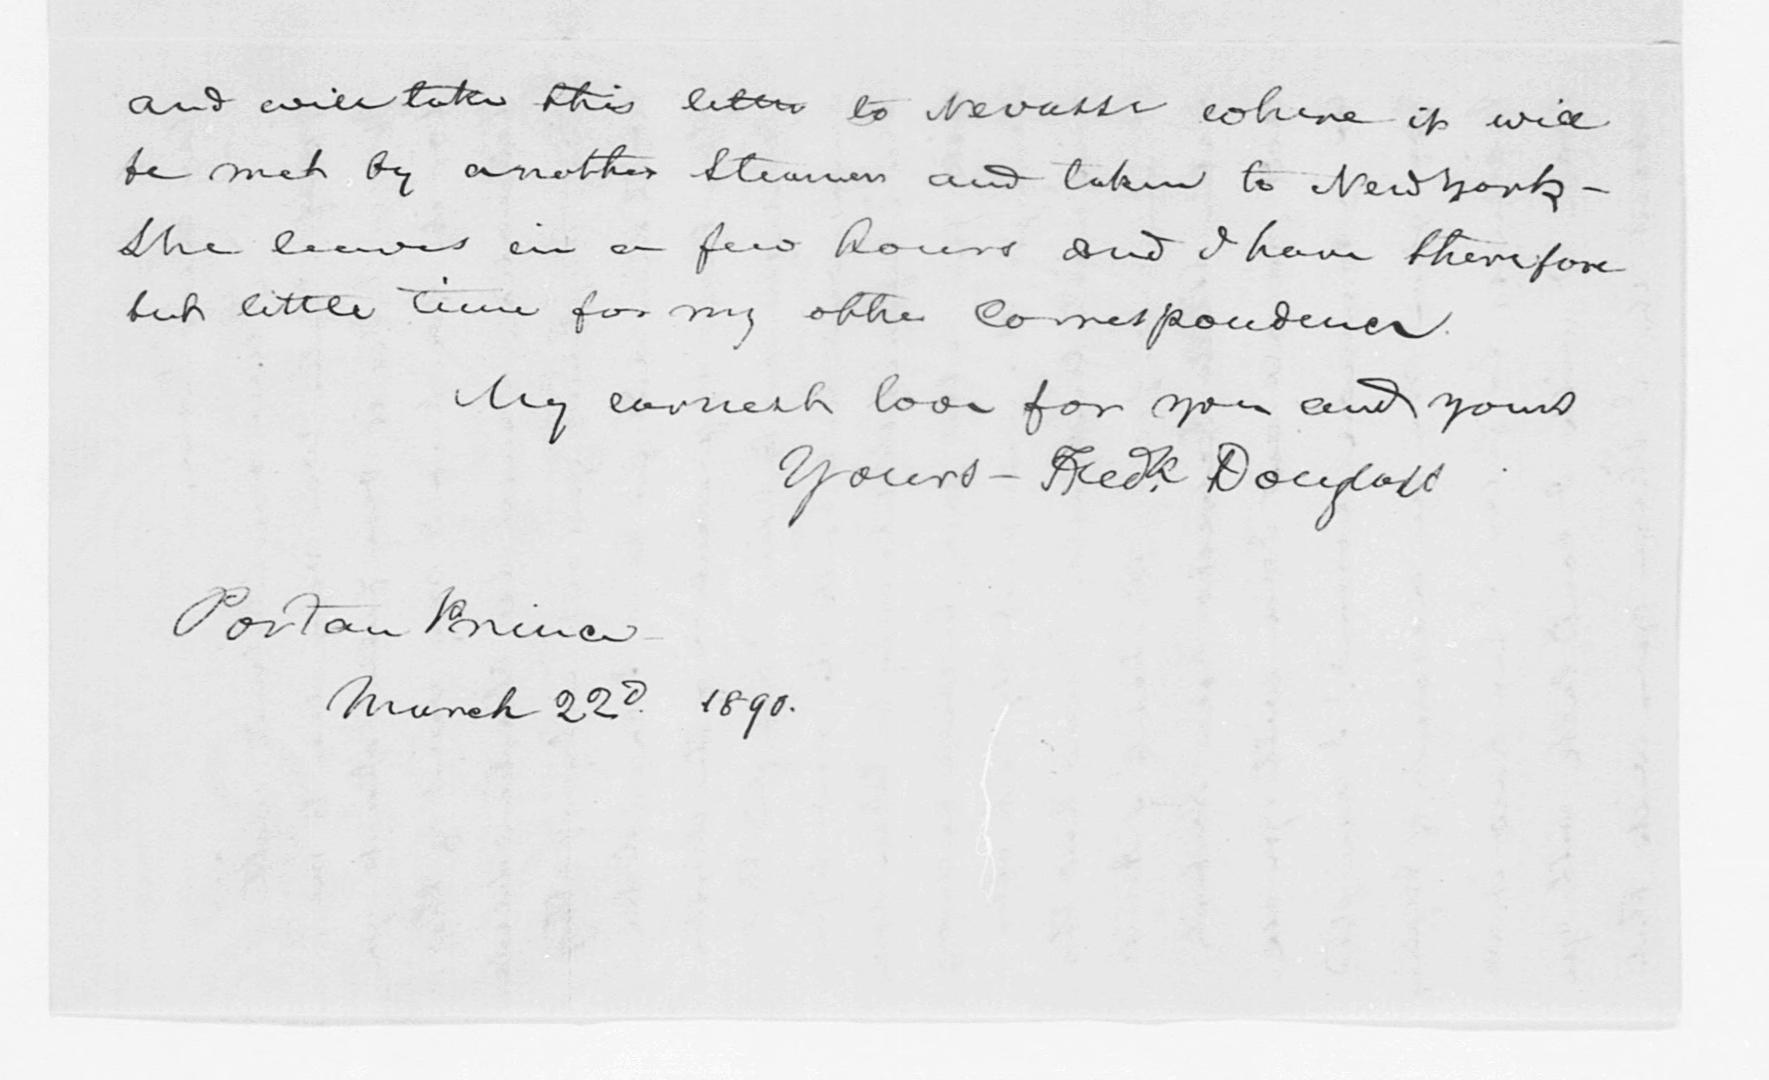 and will take this letter to Nevassa where it will
be met by another Steamer and taken to New York –
She leaves in a few hours and I have therefore
but little time for my other Correspondence.
My earnest love for you and yours
Yours – Fredk. Douglass
Port au Prince
March 22d. 1890.